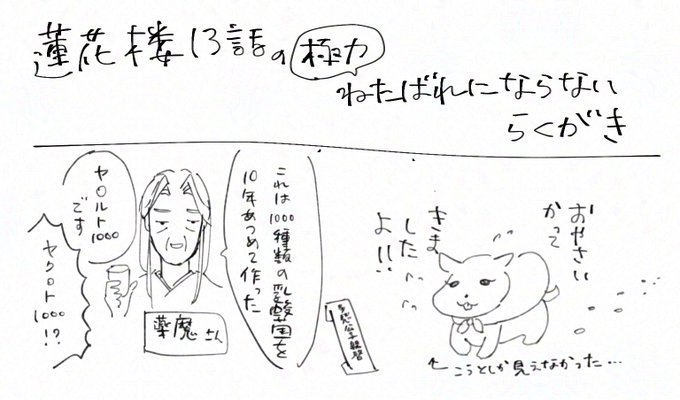 蓮花楼13話の極力
ねたばれにならない
らくがき
これは1000種類の乳酸菌を
10年あつめて作った
ヤクルト1000
です
ヤクルト
1000
!?
薬魔さん
おやさい
かって
きま
した
よ!!
←こうとしか見えなかった…